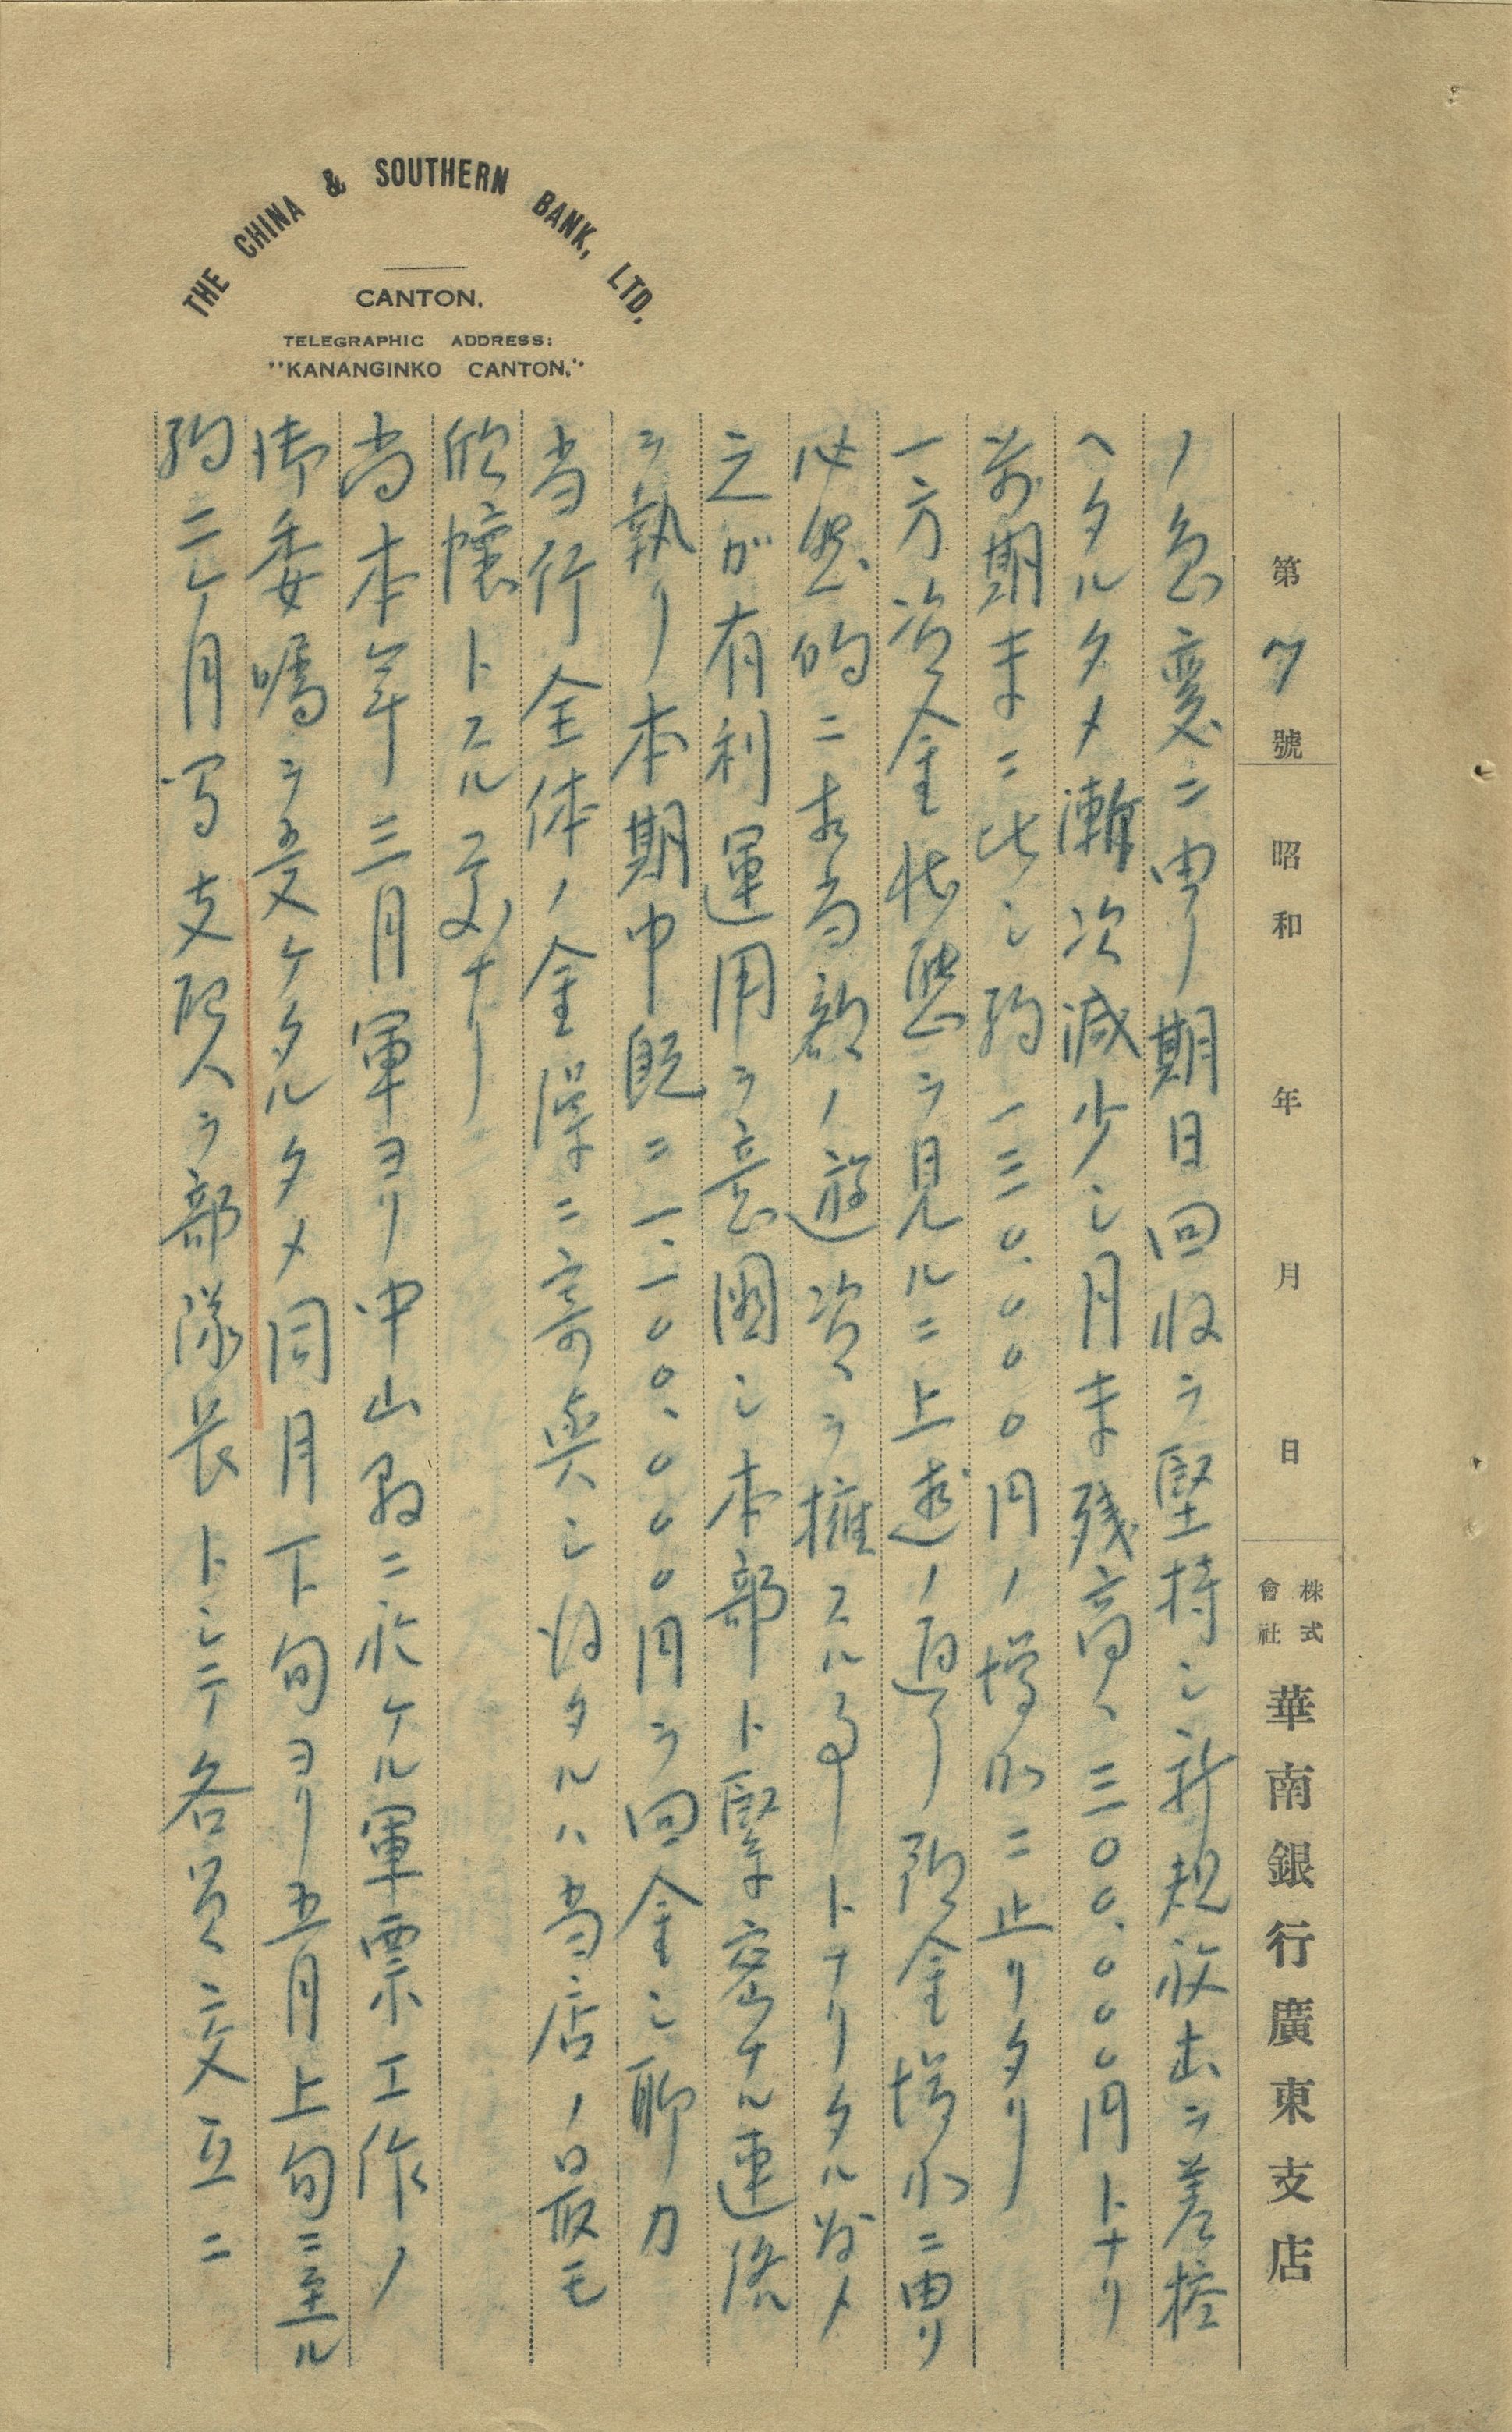 THE CHINA & SOUTHERN BANK, LTD.
CANTON.
TELEGRAPHIC ADDRESS:
"KANANGINKO CANTON."
第 7 號 昭和 年 月 日 株式會社 華南銀行廣東支店
ノ急変ニ由リ期日回收ヲ堅持シ新規放出ヲ差控
ヘタルタメ漸次減少シ月末残高ハ三〇〇.〇〇〇円トナリ
前期末ニ比シ約一三〇.〇〇〇円ノ増加ニ止リタリ
一方資金状態ヲ見ルニ上述ノ通リ預金増加ニ由リ
必然的ニ相当額ノ遊資ヲ擁スル事トナリタル為メ
之が有利運用ヲ意図シ本部ト緊密ナル連絡
ヲ執リ本期中既ニ一.一〇〇.〇〇〇円ヲ回金シ聊カ
当行全体ノ金繰ニ寄與シ得タルハ当店ノ最モ
欣懐トスル処ナリ
尚本年三月軍ヨリ中山縣ニ於ケル軍票工作ノ
御委嘱ヲ受ケタルタメ同月下旬ヨリ五月上旬ニ至ル
約二ヶ月間支配人ヲ部隊長トシテ各員交互ニ